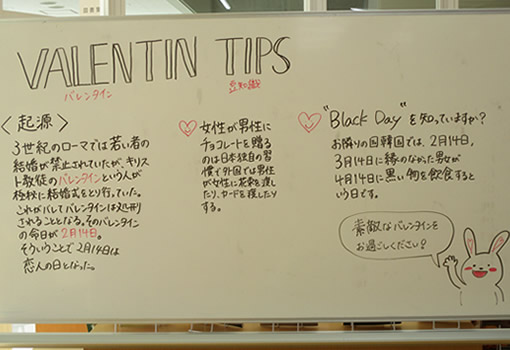 VALENTIN TIPS
バレンタイン
豆知識
〈起源〉
3世紀のローマでは若い者の
結婚が禁止されていたが、キリス
ト教徒のバレンタインという人が
極秘に結婚式をとり行っていた。
これがバレてバレンタインは処刑
されることとなる。そのバレンタイン
の命日が2月14日。
そういうことで2月14日は
恋人の日となった。
女性が男性に
チョコレートを贈る
のは日本独自の習
慣で外国では男性
が女性に花束を渡し
たり、カードを渡したり
する。
"Black Day"を知っていますか?
お隣りの国韓国では、2月14日,
3月14日に縁のなかった男女が
4月14日に黒い物を飲食すると
いう日です。
素敵なバレンタインを
お過ごしください!